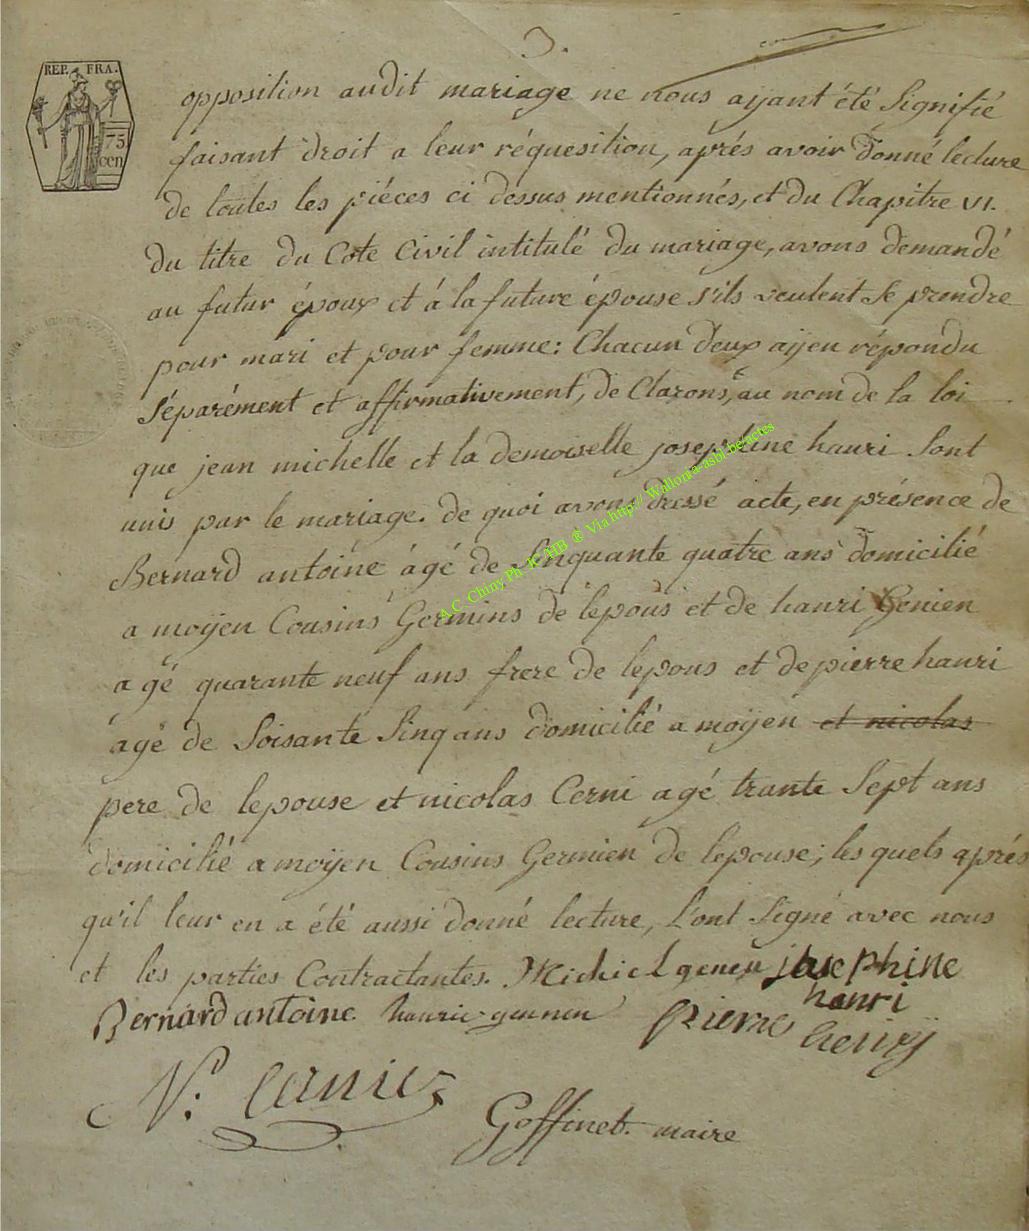 3.
REP. FRA.
75
cen
opposition audit mariage ne nous aÿant été Signifié
faisant droit a leur réquesition, aprés avoir donné lecture
de toutes les piéces ci dessus mentionnés, et du Chapitre VI.
du titre du Cote Civil intitulé du mariage, avons demandé
au futur époux et á la future épouse s'ils veulent Se prendre
pour mari et pour femme: Chacun deux aÿen répondu
Séparément et affirmativement, de Clarons, au nom de la loi
que jean michelle et la demoiselle josephine hanri Sont
unis par le mariage. de quoi avons dressé acte, en présence de
Bernard antoine ágé de Sinquante quatre ans domicilié
a moÿen Cousins Germins de lepous et de hanri Genien
agé quarante neuf ans frere de lepous et de pierre hanri
agé de Soisante Sinq ans domicilié a moÿen et nicolas
pere de lepouse et nicolas Cerni agé trante Sept ans
domicilié a moÿen Cousins Germien de lepouse; les quels aprés
qu'il leur en a été aussi donné lecture, l'ont Signé avec nous
et les parties Contractantes. Michiel genen josephine
hanri
Bernard antoine hanric gennen pierre henrÿ
N: Cernie
Goffinet. maire
A.C. Chiny Ph K/HB ® Via http:// Wallonia-asbl.be/actes